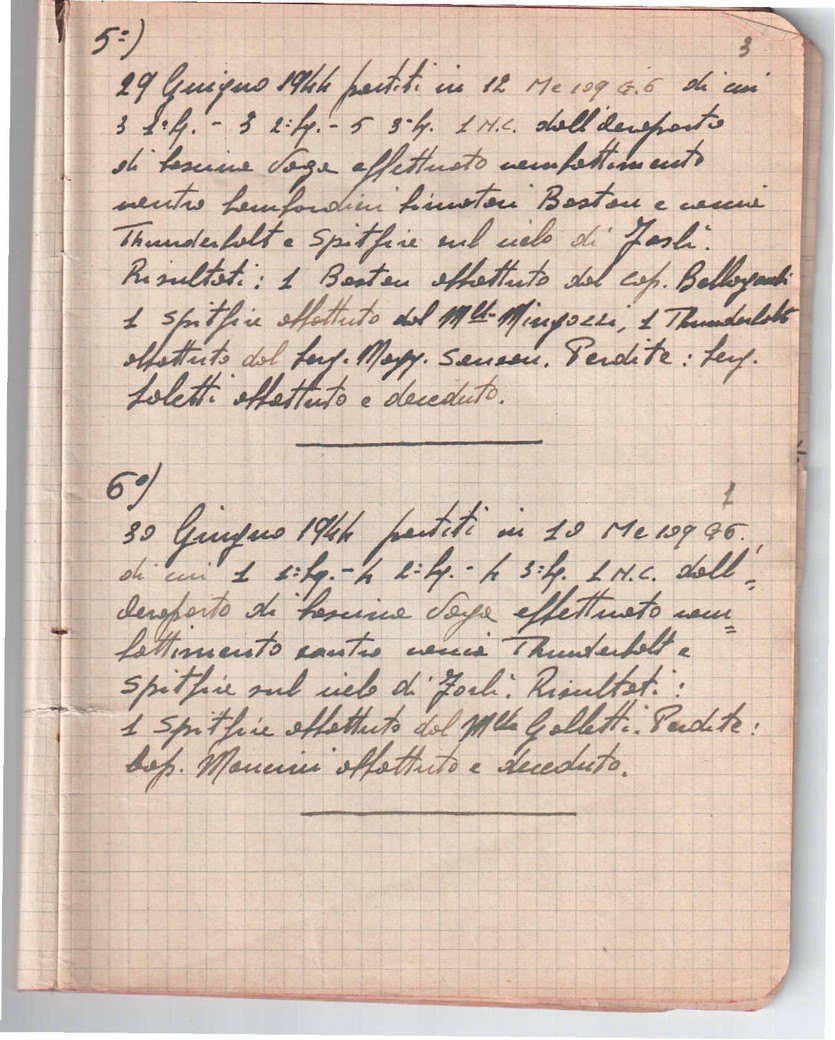 5º)
3
29 Giugno 1944 partiti in 12 Me 109 G.6 di cui
3 1ª Sq. - 3 2ª Sq. - 5 3ª Sq. 1 N.C. dall'aeroporto
di Cascina Vaga effettuato combattimento
contro bombardieri bimotori Boston e caccia
Thunderbolt e Spitfire sul cielo di Forlì.
Risultati: 1 Boston abbattuto dal Cap. Bellagambi
1 Spitfire abbattuto dal Mllo Mingozzi, 1 Thunderbolt
abbattuto dal Serg. Magg. Sanson. Perdite: Serg.
Saletti abbattuto e deceduto.
6º)
1
30 Giugno 1944 partiti in 10 Me 109 G6.
di cui 1 1ª Sq. - 4 2ª Sq. - 4 3ª Sq. 1 N.C. dall'=
aeroporto di Cascina Vaga effettuato com=
battimento contro caccia Thunderbolt e
Spitfire sul cielo di Forlì. Risultati:
1 Spitfire abbattuto dal Mllo Galletti. Perdite:
Cap. Mancini abbattuto e deceduto.